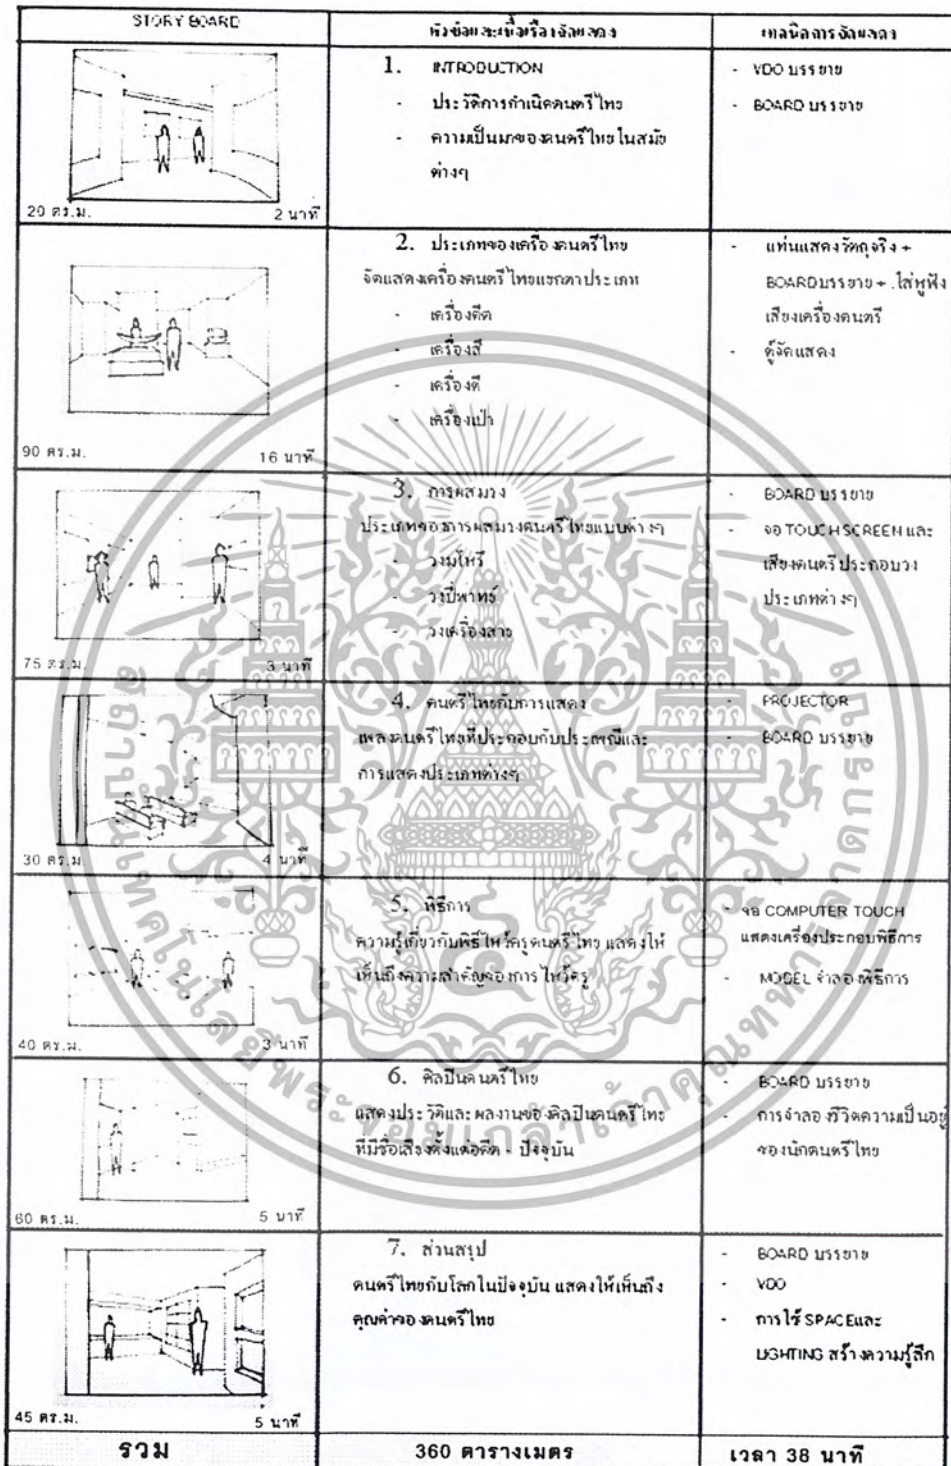 STORY BOARD
หัวข้อและเนื้อเรื่องจัดแสดง
เทคนิคการจัดแสดง
20 ตร.ม.
2 นาที
1. INTRODUCTION
- ประวัติการกำเนิดดนตรีไทย
- ความเป็นมาของดนตรีไทยในสมัย
ต่างๆ
- VDO บรรยาย
- BOARD บรรยาย
90 ตร.ม.
16 นาที
2. ประเภทของเครื่องดนตรีไทย
จัดแสดงเครื่องดนตรีไทยแยกตาประเภท
- เครื่องดีด
- เครื่องสี
- เครื่องตี
- เครื่องเป่า
- แท่นแสดงวัตถุจริง +
BOARD บรรยาย + .ใส่หูฟัง
เสียงเครื่องดนตรี
- ตู้จัดแสดง
75 ตร.ม.
3 นาที
3. การผสมวง
ประเภทของการผสมวงดนตรีไทยแบบต่างๆ
- วงมโหรี
- วงปี่พาทย์
- วงเครื่องสาย
- BOARD บรรยาย
- จอ TOUCH SCREEN และ
เสียงดนตรีประกอบวง
ประเภทต่างๆ
30 ตร.ม.
4 นาที
4. ดนตรีไทยกับการแสดง
เพลงดนตรีไทยที่ประกอบกับประเพณีและ
การแสดงประเภทต่างๆ
- PROJECTOR
- BOARD บรรยาย
40 ตร.ม.
3 นาที
5. พิธีการ
ความรู้เกี่ยวกับพิธีไหว้ครูดนตรีไทย แสดงให้
เห็นถึงความสำคัญของการไหว้ครู
- จอ COMPUTER TOUCH
แสดงเครื่องประกอบพิธีการ
- MODEL จำลองพิธีการ
60 ตร.ม.
5 นาที
6. ศิลปินดนตรีไทย
แสดงประวัติและผลงานของศิลปินดนตรีไทย
ที่มีชื่อเสียงตั้งแต่อดีต - ปัจจุบัน
- BOARD บรรยาย
- การจำลองชีวิตความเป็นอยู่
ของนักดนตรีไทย
45 ตร.ม.
5 นาที
7. ส่วนสรุป
ดนตรีไทยกับโลกในปัจจุบัน แสดงให้เห็นถึง
คุณค่าของดนตรีไทย
- BOARD บรรยาย
- VDO
- การใช้ SPACE และ
LIGHTING สร้างความรู้สึก
รวม
360 ตารางเมตร
เวลา 38 นาที
สถาบันเทคโนโลยีพระจอมเกล้าเจ้าคุณทหารลาดกระบัง